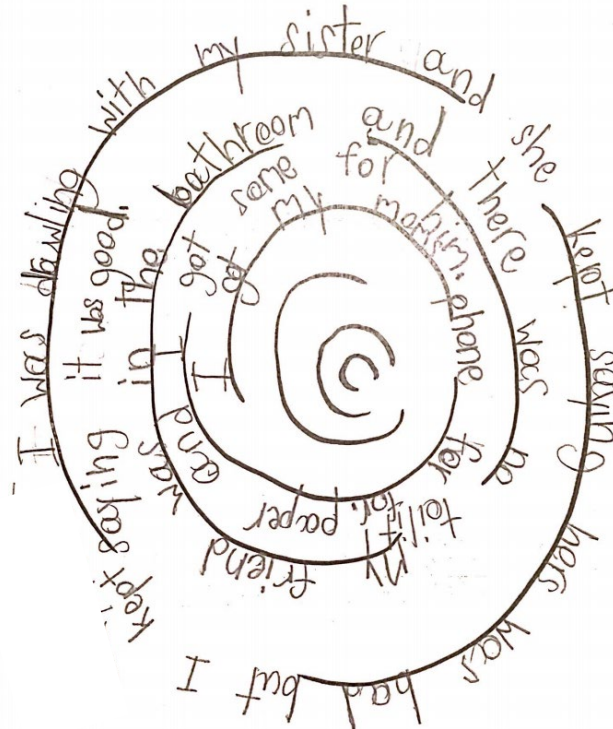 I was drawling with my sister and she kept saying hers was bad but I
kept sayling it was good.
My friend was in tha bathroom and there was no toilit
paper and I got some for him.
I got my mom phone for